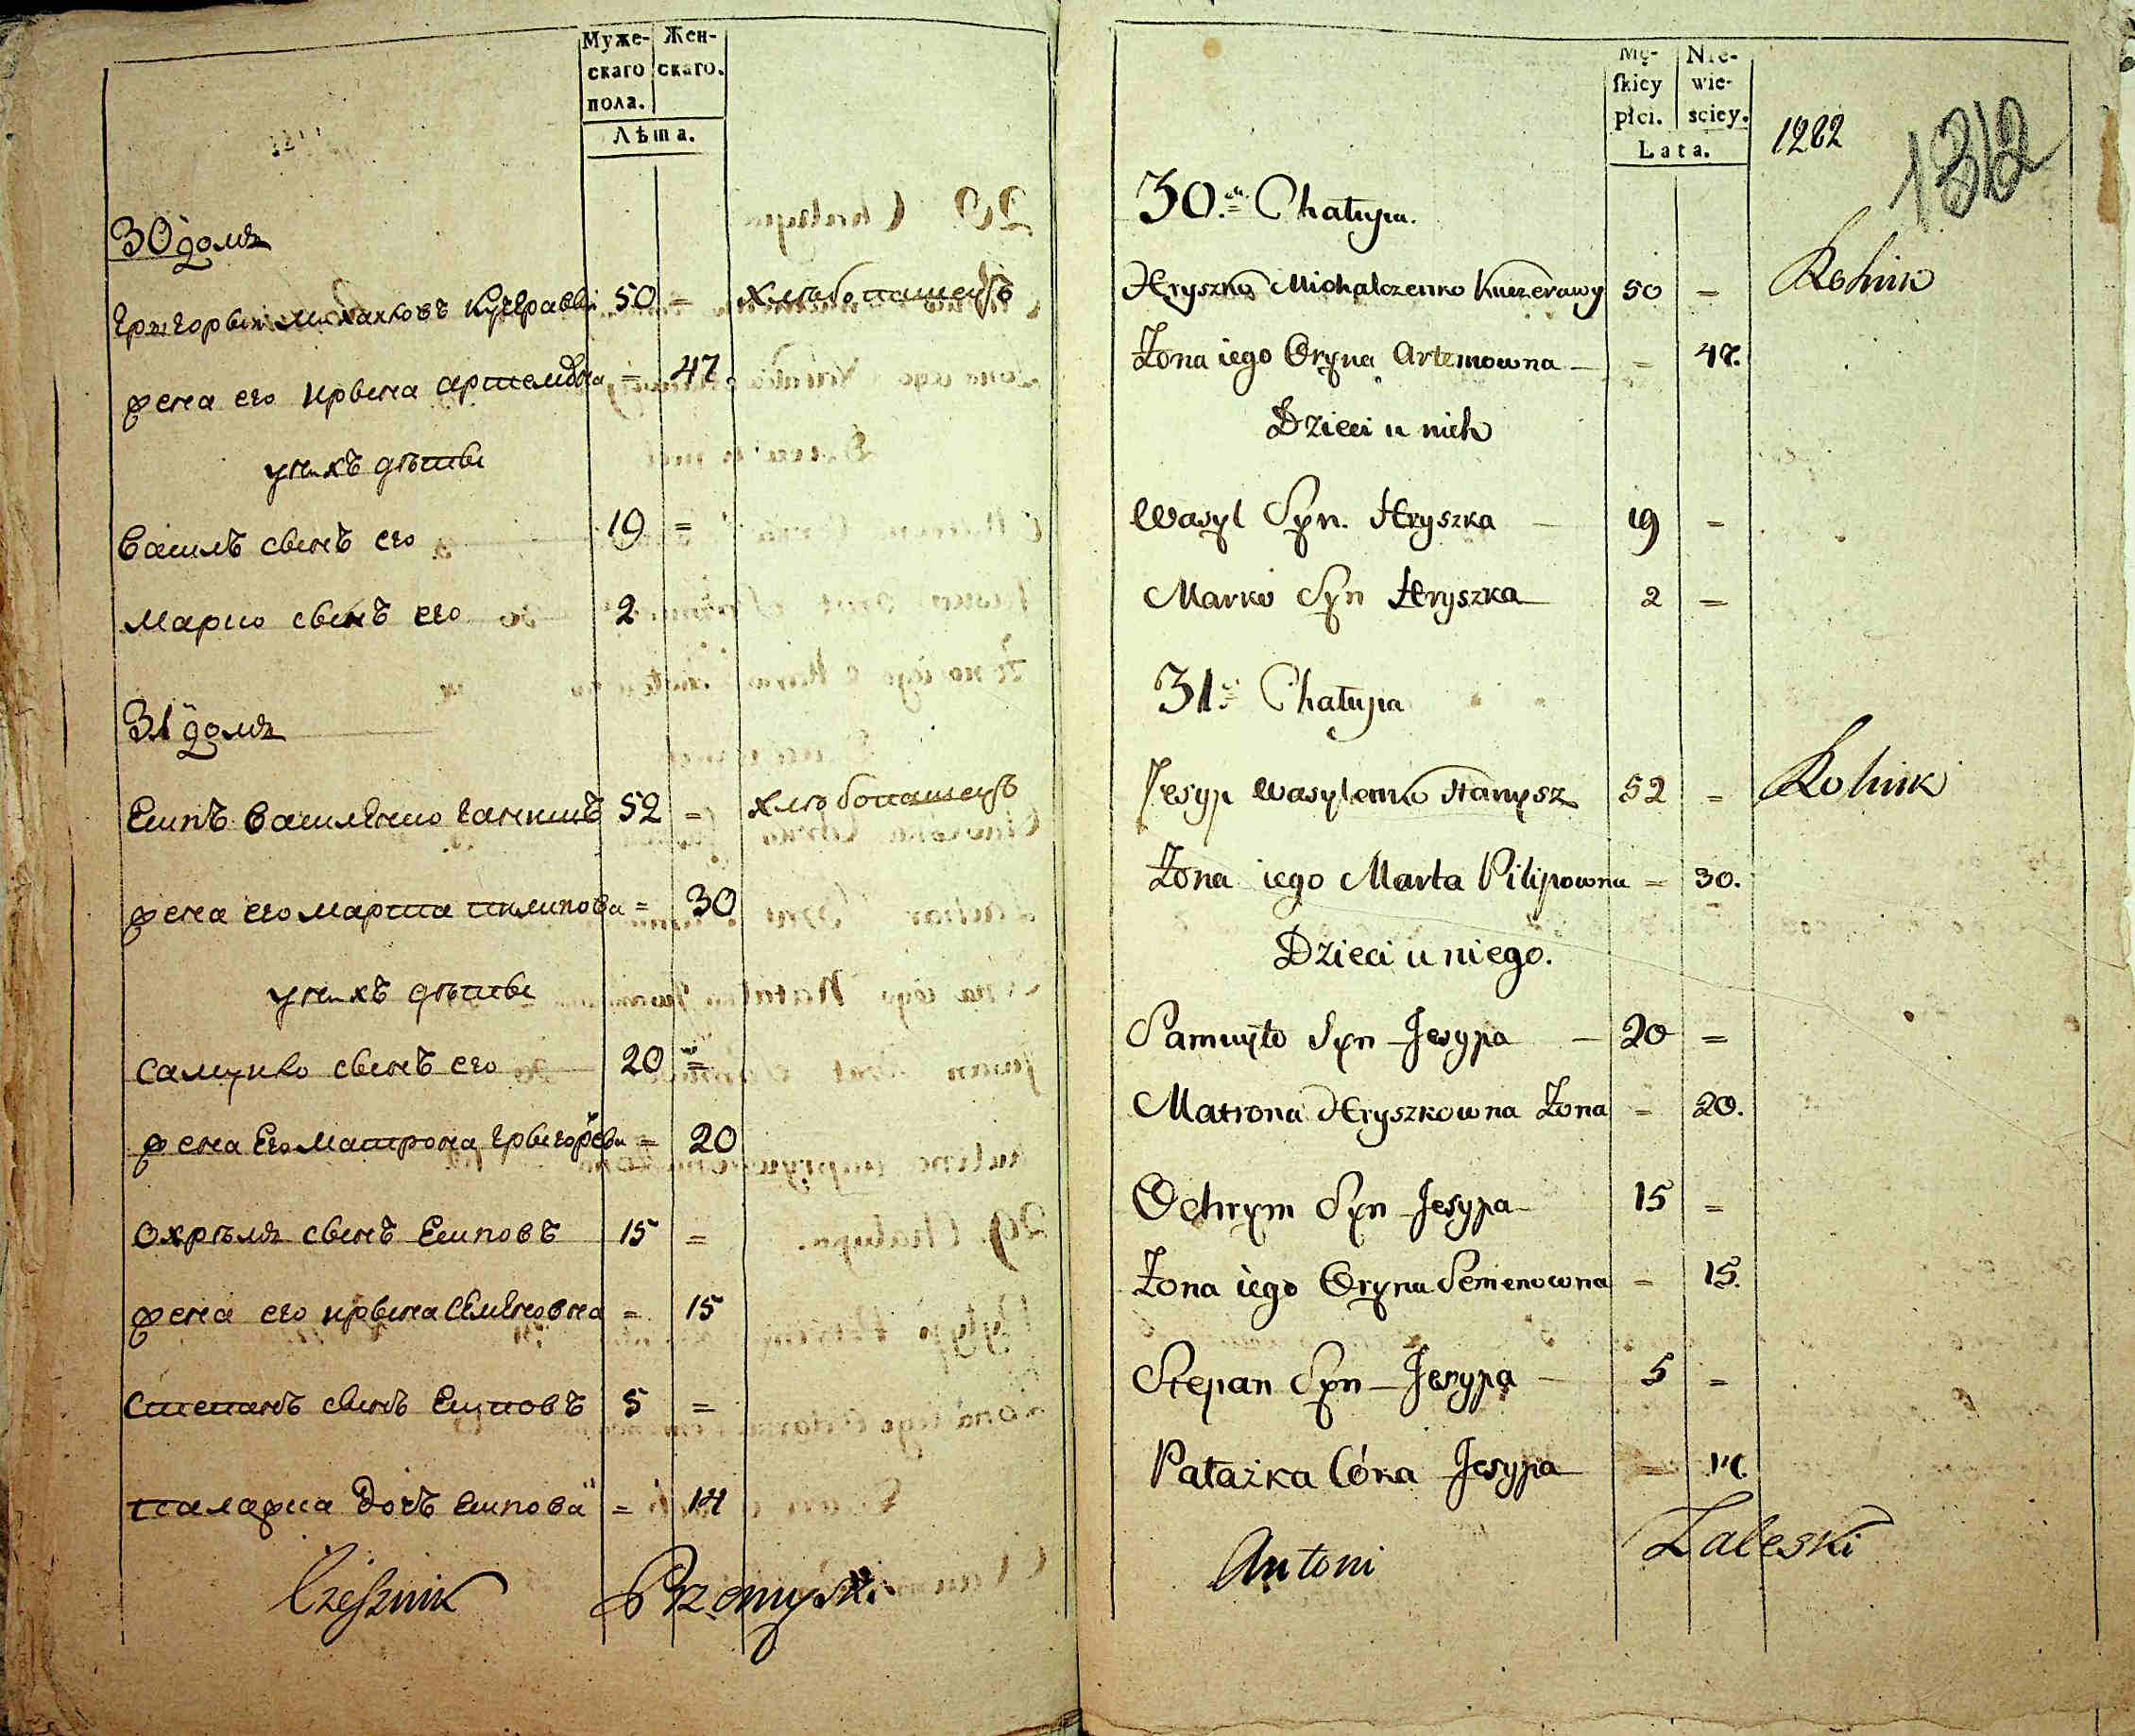 Муже- Жен-
скаго скаго.
пола.
Лѣта.
30 домъ
Григорый Михайловъ Кучеравый 50 = хлѣбопашецъ
жена его Ирына Артемова = 47
у них дѣты
Василь сынъ его 19 =
Марко сынъ его 2
31 домъ
Есипъ Василенко Ганишъ 52 = хлѣбопашецъ
жена его Марта Пилипова = 30
у них дѣты
Самуило сынъ его 20 =
жена его Матрона Грыгорева = 20
Охрѣмъ сынъ Есиповъ 15 =
жена его Ирына Семеновна = 15
Степанъ сынъ Есиповъ 5 =
Палажка дочь Есипова = 14
Czesznik Przemyski
Mę- Nie-
skiey wie-
płci. sciey.
Lata.
1282
1312
30. Chałupa.
Hryszko Michalczenko Kuczerawy 50 = Rolnik
Żona iego Oryna Artemowna — = 47.
Dzieci u nich
Wasyl Syn Hryszka — 19 =
Marko Syn Hryszka 2 =
31. Chałupa
Jesyp Wasylenko Hanysz 52 = Rolnik
Żona iego Marta Pilipowna = 30.
Dzieci u niego.
Samuyło Syn Jesypa — 20 =
Matrona Hryszkowna Żona = 20.
Ochrym Syn Jesypa 15 =
Żona iego Oryna Semenowna = 15.
Stepan Syn Jesypa — 5 =
Pałażka Córka Jesypa = 14.
Antoni Zaleski